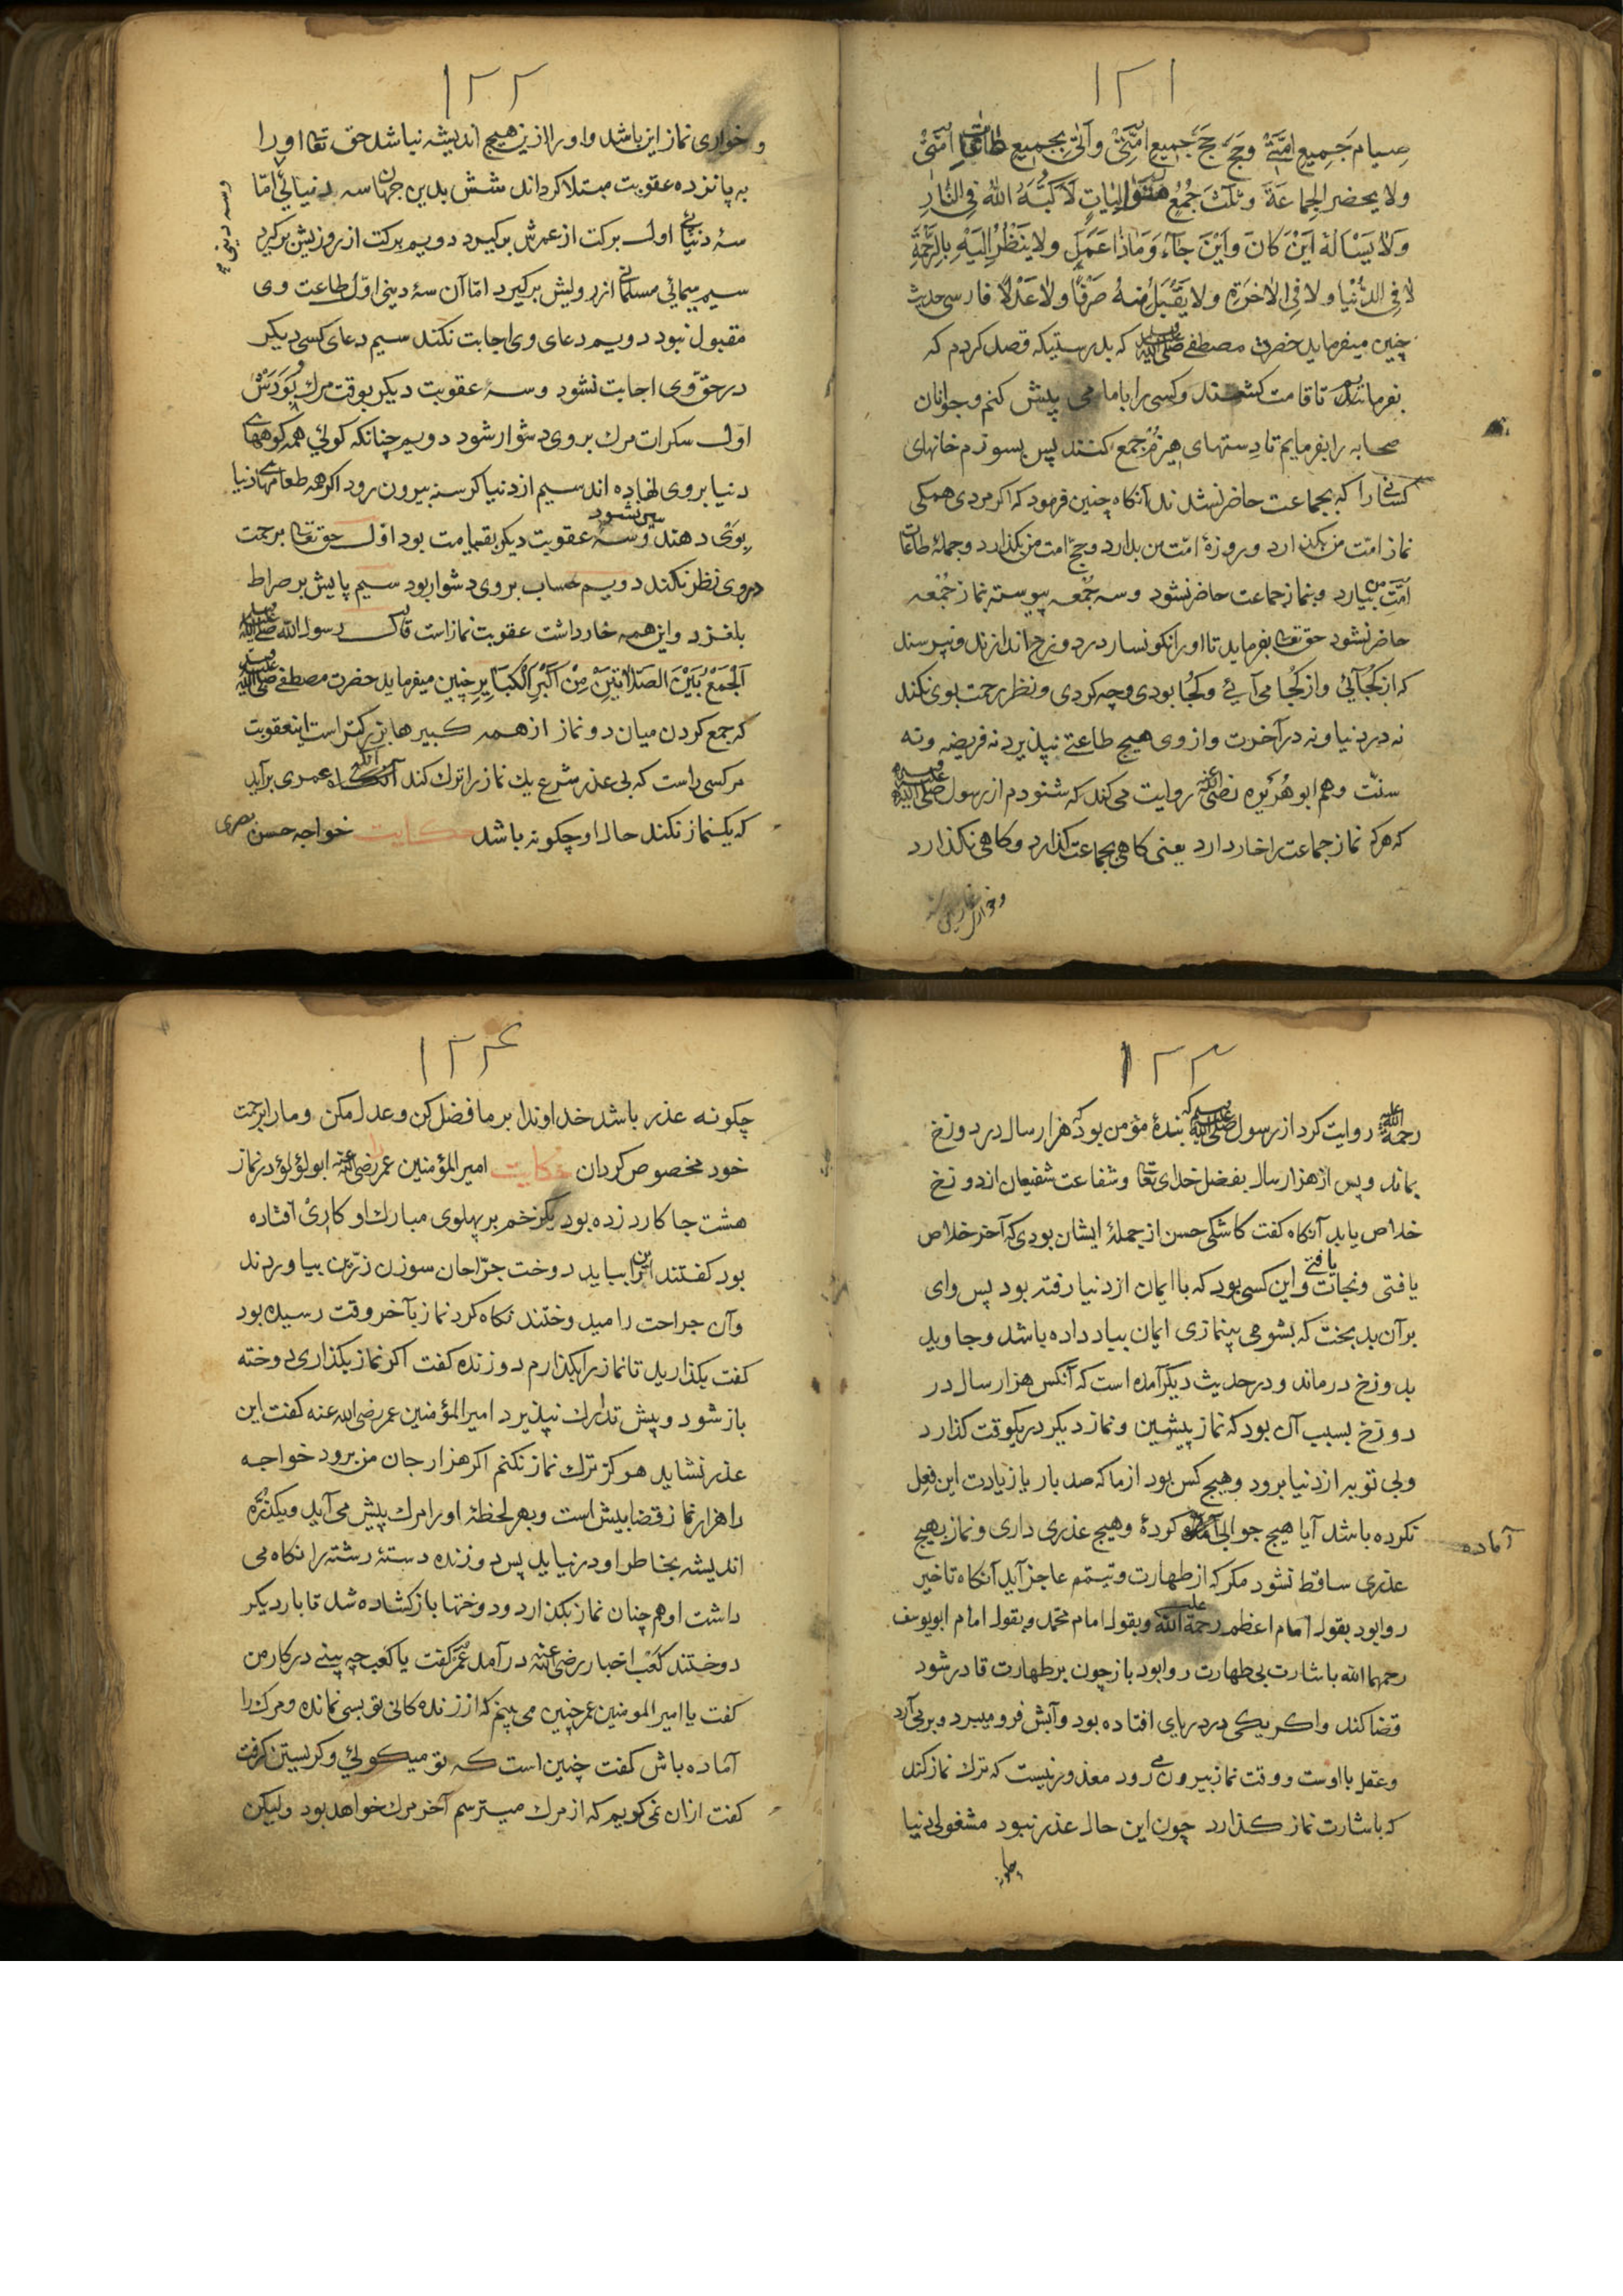 ١٢١
صِیام جَمِیع امَّتِی وحَجَّ حَجَّ جَمِیع امَّتِی وآتی بِجمیعِ طاعاتِ امَّتی
ولا یحضر الجماعَةَ وثلثَ جُمُعٍ متوالیاتٍ لا کَبَّهُ الله فِی النَّارِ
وَلا یَسْالَهُ اَیْنَ کانَ واَیْنَ جآءَ وَماذا عَمَلَ ولا ینَظُرُ اِلَیْهِ بِالرَّحْمَةِ
لا فِی الدُّنْیا ولا فِی الاخرَةِ ولا یَقْبَلُ مِنهُ صَرْفًا ولا عَدْلًا فارسی حدیث
چنین میفرماید حضرت مصطفی صلی الله علیه وسلم که بدرستیکه قصد کردم که
بفرمایم تا قامت کشند وکسی را بامامی پیش کنم وجوانان
صحابه را بفرمایم تا دستهای هیزم جمع کنند پس بسوزم خانهای
کسانی را که بجماعت حاضر نشدند آنکاه چنین فرمود که اکر مردی همکی
نماز امّت من بکذارد وروزهٔ امّت من بدارد وحج امت من بکذارد وجملهٔ طاعات
امّت من بیارد وبنماز جماعت حاضر نشود وسه جُمعه پیوسته بنماز جُمْعه
حاضر نشود حق تعا بفرماید تا اورا نکونسار در دوزخ اندازند ونپرسند
که از کُجآئی واز کُجا می آیئے وکجُا بودی وچه کردی ونظر رحمت بوی نکند
نه در دنیا ونه در آخرت واز وی هیچ طاعتے نپذیرد نه فریضه ونه
سنّت وهم ابو هُرَیره رضی الله عنه روایت می کند که شنودم از رسول صلی الله علیه وسلم
که هرکه نماز جماعت را خار دارد یعنی کاهی بجماعت کذارد وکاهی نکذارد
١٢٢
وخواری نماز این باشد واورا ازین هیچ اندیشه نباشد حق تعا اورا
به پانزده عقوبت مبتلا کرداند شش بدین جهان سه دنیائی امّا
وسه دینی
سهٔ دنیائے اول برکت از عمرش برکیرد دویم برکت از روزیش برکیرد
سیم سیمائی مسلمانی از رویش برکیرد امّا آن سهٔ دینی اوّل طاعت وی
مقبول نبود دویم دعای وی اجابت نکند سیم دعای کسی دیکر
در حقّ وی اجابت نشود وسهٔ عقوبت دیکر بوقت مرك بُوَدَش
اوّل سکرات مرك بر وی دشوار شود دویم چنانکه کوئی همه کوههای
دنیا بر وی نهاده اند سیم از دنیا کرسنه بیرون رود اکر همه طعامهای دنیا
بوی دهند سیر نشود وسهٔ عقوبت دیکر بقیامت بود اوّل حق تعا برحمت
در وی نظر نکند دویم حساب بر وی دشوار بود سیم پایش بر صراط
بلغزد واین همه خار داشت عقوبت نماز است قال رسول الله صلی الله علیه وسلم
اَلجَمْعُ بَیْنَ الصَلاتَیْنِ مِنْ اَکْبَرِ الْکَبائِرِ چنین میفرماید حضرت مصطفی صلی الله علیه وسلم
که جمع کردن میان دو نماز از همه کبیرها بزرکتر است اینعقوبت
مر کسی راست که بی عذر شرع یك نماز را ترك کند آنکه عمری برآید
که یکنماز نکند حال او چکونه باشد حکایت خواجه حسن بصری
١٢٣
رحمة الله علیه روایت کرد از رسول صلی الله علیه وسلم که بندهٔ مؤمن بود که هزار سال در دوزخ
بماند وپس از هزار سال بفضل خدای تعا وشفاعت شفیعان از دوزخ
خلاص یابد آنکاه کفت کاشکی حسن از جملهٔ ایشان بودی که آخر خلاص
یافتی ونجات یافتی واین کسی بود که با ایمان از دنیا رفته بود پس وای
بر آن بدبخت که بشومی بینمازی ایمان بباد داده باشد وجاوید
بدوزخ درماند ودر حدیث دیکر آمده است که آنکس هزار سال در
دوزخ بسبب آن بود که نماز پیشین ونماز دیکر در یکوقت کذارد
وبی توبه از دنیا برود وهیچ کس بود از ما که صد بار یا زیادت این فعل
نکرده باشد آیا هیچ جوابی آماده کردهٔ وهیچ عذری داری ونماز بهیچ
آماده
عذری ساقط نشود مکر که از طهارت وتیمّم عاجز آید آنکاه تاخیر
روا بود بقول امام اعظم رحمة الله علیه وبقول امام محمد وبقول امام ابویوسف
رحمهما الله باشارت بی طهارت روا بود باز چون بر طهارت قادر شود
قضا کند واکر یکی در دریای افتاده بود وآبش فرو میبرد وبر می آرد
وعقل با اوست ووقت نماز بیرون می رود معذور نیست که ترك نماز کند
که باشارت نماز کذارد چون این حال عذر نبود مشغولی دنیا
١٢٤
چکونه عذر باشد خداوندا بر ما فضل کن وعدل مکن ومارا برحمت
خود مخصوص کردان حکایت امیر المؤمنین عمر رضی الله عنه را ابو لؤلؤ در نماز
هشت جا کارد زده بود یکزخم بر پهلوی مبارك او کاری افتاده
بود کفتند این را بباید دوخت جرّاحان سوزن زرّین بیاوردند
وآن جراحت را میدوختند نکاه کرد نماز بآخر وقت رسیده بود
کفت بکذارید تا نماز را بکذارم دوزنده کفت اکر نماز بکذاری دوخته
باز شود وپیش تدارك نپذیرد امیر المؤمنین عمر رضی الله عنه کفت این
عذر نشاید هرکز ترك نماز نکنم اکر هزار جان من برود خواجه
را هزار نماز قضا بیش است وبهر لحظهٔ اورا مرك پیش می آید ویکذرّه
اندیشه بخاطر او در نیاید پس دوزنده دستهٔ رشته را نکاه می
داشت او همچنان نماز بکذارد ودوختها باز کشاده شد تا بار دیکر
دوختند کَعْب اخبار رضی الله عنه درآمد عُمَر کفت یا کعب چه بینے در کار من
کفت یا امیر المومنین عمر چنین می بینم که از زندکانی تو بسی نمانده ومرك را
آماده باش کفت چنین است که تو میکوئی وکریستن کرفت
کفت ازان نمی کویم که از مرك میترسم آخر مرك خواهد بود ولیکن